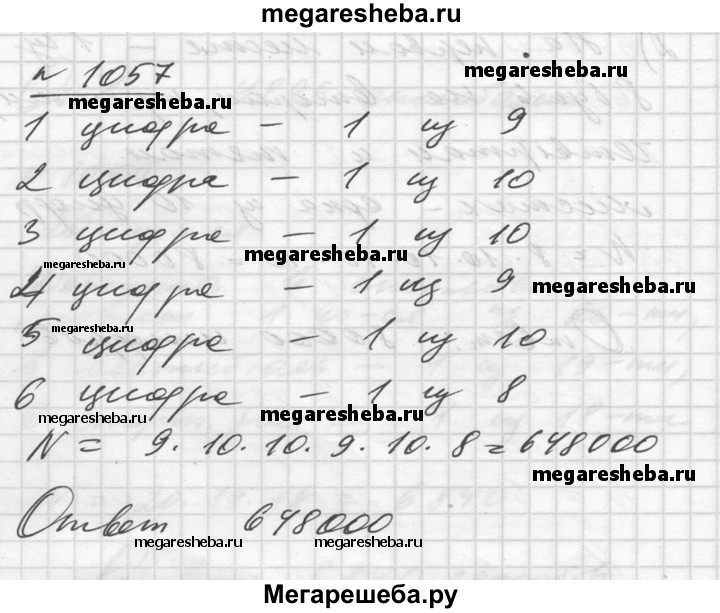 megaresheba.ru
№ 1057
megaresheba.ru
megaresheba.ru
1 цифра – 1 из 9
2 цифра – 1 из 10
3 цифра – 1 из 10
megaresheba.ru
megaresheba.ru
4 цифра – 1 из 9
megaresheba.ru
megaresheba.ru
5 цифра – 1 из 10
6 цифра – 1 из 8
megaresheba.ru
megaresheba.ru
N = 9. 10. 10. 9. 10. 8 = 648000
megaresheba.ru
Ответ 648000
megaresheba.ru
megaresheba.ru
Мегарешеба.ру